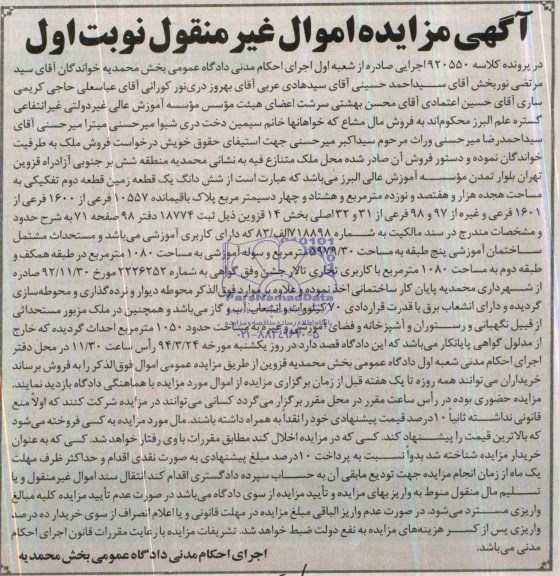 آگهی مزایده اموال غیر منقول نوبت اول
در پرونده کلاسه ۹۲۰۵۵۰ اجرایی صادره از شعبه اول اجرای احکام مدنی دادگاه عمومی بخش محمدیه خواندگان آقای سید
مرتضی نوربخش آقای سیداحمد حسینی آقای سیدهادی عربی آقای بهروز دری‌نور کورانی آقای عباسعلی حاجی کریمی
ساری آقای حسین اعتمادی آقای محسن بهشتی سرشت اعضای هیئت مؤسس مؤسسه آموزش عالی غیردولتی غیرانتفاعی
گستره علم البرز محکوم‌اند به فروش مال مشاع که خواهانها خانم سیمین دخت دری شیوا میرحسنی میترا میرحسنی آقای
سیداحمدرضا میرحسنی وراث مرحوم سیداکبر میرحسنی جهت استیفای حقوق خویش درخواست فروش ملک به طرفیت
خواندگان نموده و دستور فروش آن صادر شده محل ملک متنازع فیه به نشانی محمدیه منطقه شش بر جنوبی آزادراه قزوین
تهران بلوار تمدن مؤسسه آموزش عالی البرز می‌باشد که عبارت است از شش دانگ یک قطعه زمین قطعه دوم تفکیکی به
مساحت هجده هزار و هفتصد و نوزده مترمربع و هشتاد و چهار دسیمتر مربع پلاک باقیمانده ۱۰۵۵۷ فرعی از ۱۶۰۰ فرعی از
۱۶۰۱ فرعی و غیره از ۹۷ و ۹۸ فرعی از ۳۱ و ۳۲ اصلی بخش ۱۴ قزوین ذیل ثبت ۱۸۷۷۴ دفتر ۹۸ صفحه ۷۱ به شرح حدود
و مشخصات مندرج در سند مالکیت به شماره ۷۱۸۸۹۸الف/۸۳ که دارای کاربری آموزشی می‌باشد و مستحداث مشتمل
ساختمان آموزشی پنج طبقه به مساحت ۵۹۷۹/۳۰ مترمربع و سوله آموزشی به مساحت ۱۰۸۰ مترمربع در طبقه همکف و
طبقه دوم به مساحت ۱۰۸۰ مترمربع با کاربری تجاری تالار جشن وفق گواهی به شماره ۲۲۲۶۲۵۲ مورخ ۹۲/۱۱/۳۰ صادره
از شهرداری محمدیه پایان کار ساختمانی اخذ نموده و علاوه بر موارد فوق الذکر محوطه دیوار و نرده‌گذاری و محوطه‌سازی
گردیده و دارای انشعاب برق با قدرت قراردادی ۷۰ کیلووات و انشعاب آب و گاز می‌باشد و همچنین در ملک مزبور مستحداثی
از قبیل نگهبانی و رستوران و آشپزخانه و فضای آموزشی و غیره به مساحت حدود ۱۰۵۰ مترمربع احداث گردیده که خارج
از مدلول گواهی پایانکار می‌باشد که این دادگاه قصد دارد در روز یکشنبه مورخه ۹۴/۳/۲۴ رأس ساعت ۱۱/۳۰ در محل دفتر
اجرای احکام مدنی شعبه اول دادگاه عمومی بخش محمدیه قزوین از طریق مزایده عمومی اموال فوق‌الذکر را به فروش برساند
خریداران می‌توانند همه روزه تا یک هفته قبل از زمان برگزاری مزایده از اموال مورد مزایده با هماهنگی دادگاه بازدید نمایند.
مزایده حضوری بوده در رأس ساعت مقرر در محل مقرر برگزار می‌گردد کسانی می‌توانند در مزایده شرکت کنند که اولاً منع
قانونی نداشته ثانیاً ۱۰ درصد قیمت پیشنهادی خود را نقداً به همراه داشته باشند. مال مورد مزایده به کسی فروخته می‌شود
که بالاترین قیمت را پیشنهاد کند. کسی که در مزایده اخلال کند مطابق مقررات با وی رفتار خواهد شد. کسی که به عنوان
خریدار مزایده شناخته شد بدواً نسبت به پرداخت ۱۰ درصد مبلغ پیشنهادی به صورت نقدی اقدام و حداکثر ظرف مهلت
یک ماه از زمان انجام مزایده جهت تودیع مابقی آن به حساب سپرده دادگستری اقدام کند انتقال سند اموال غیر منقول و یا
تسلیم مال منقول منوط به واریز بهای مزایده و تأیید مزایده از سوی دادگاه می‌باشد در صورت عدم تأیید مزایده کلیه مبالغ
واریزی مسترد می‌شود. در صورت عدم واریز الباقی مبلغ مزایده در مهلت قانونی و یا اعلام انصراف از سوی خریدار ده درصد
واریزی پس از کسر هزینه‌های مزایده به نفع دولت ضبط خواهد شد. تشریفات مزایده با رعایت مقررات قانون اجرای احکام
مدنی می‌باشد.
اجرای احکام مدنی دادگاه عمومی بخش محمدیه